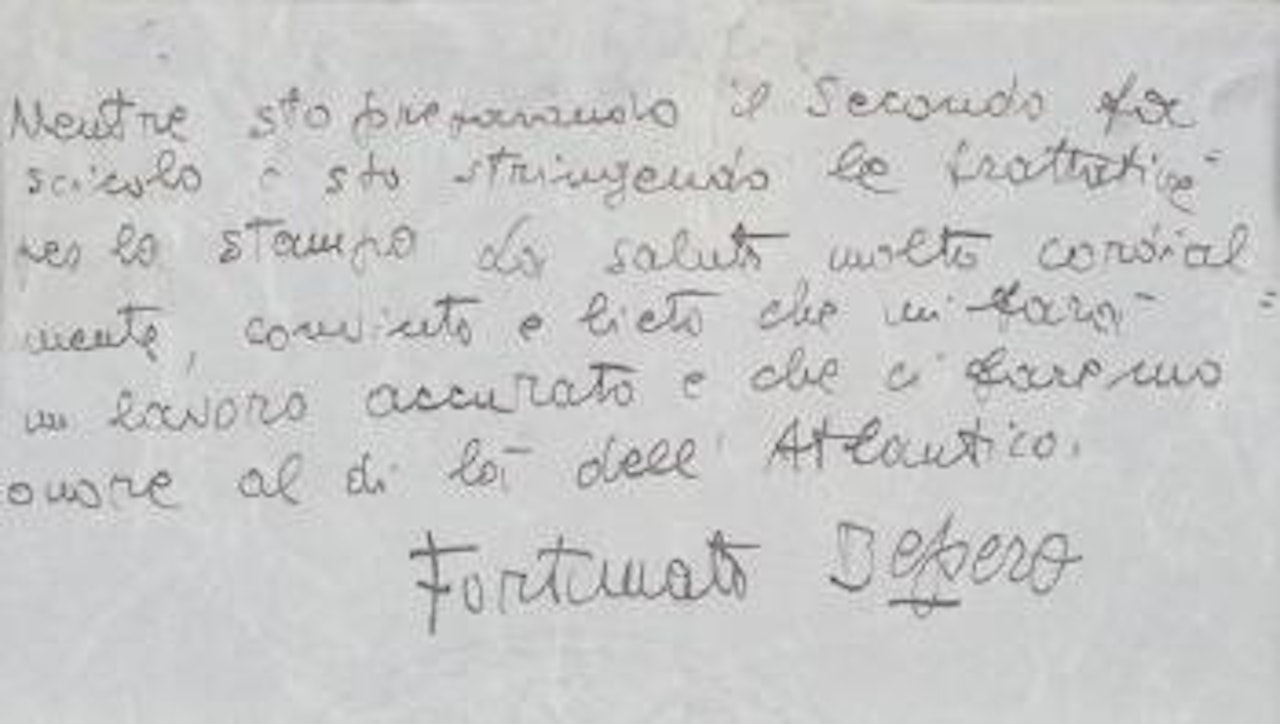 Mentre sto preparando il secondo fa
scicolo e sto stringendo le trattative
per la stampa La saluto molto cordial
mente, convinto e lieto che mi farà
un lavoro accurato e che ci faremo
onore al di là dell' Atlantico.
Fortunato Depero